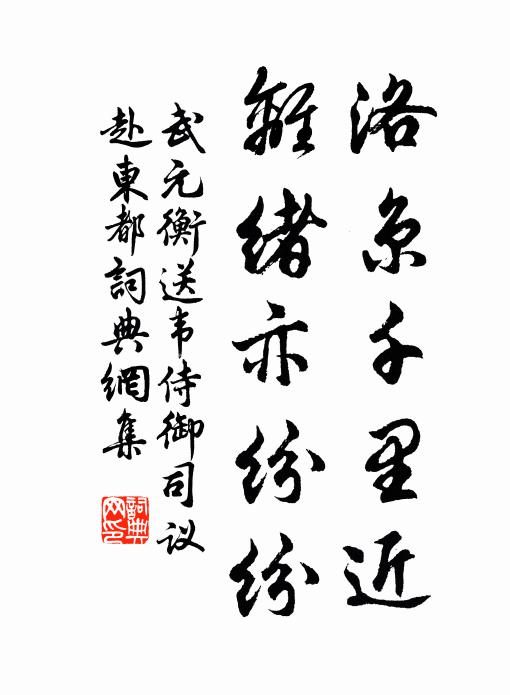 洛京千里近
離緒亦紛紛
武元衡送韦侍御司议
赴東都詞典網集
詞典
网印